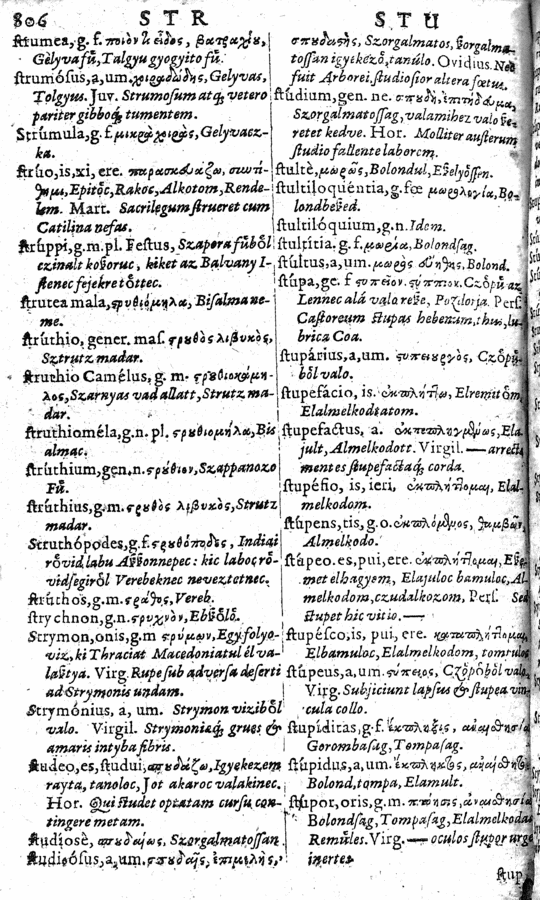 806 STR STU
strumea, g. f. ποιὸν τι εἶδος, βατραχίυ,
Gelyvafű, Talgyu gyogyito fű.
strumósus, a, um. χοιραδώδης, Gelyvas,
Tolgyus. Juv. Strumosum atq; vetero
pariter gibboq; tumentem.
Strumula, g. f. μικρὰ χοιρὰς, Gelyvacz-
ka.
struo, is, xi, ere. παρασκευάζω,
Epitôc, Rakos, Alkotom, Rende-
lem. Mart. Sacrilegum strueret cum
Catilina nefas.
struppi, g. m. pl. Festus, Szapora fűbôl
czinalt koßoruc, kiket az Balvany I-
stenec fejekre tôttec.
strutea mala, ςρυθιόμηλα, Bisalma ne-
me.
strúthio, gener. mas. ςρουθὸς λιβυκὸς,
Sztrutz madar.
struthio Camélus, g. m. ςρουθιοκάμη-
λος, Szarnyas vad allatt, Strutz ma-
dar.
struthioméla, g. n. pl. ςρουθιομήλα, Bis
almac.
struthium, gen. n. ςρούθιον, Szappanozo
Fű.
strúthius, g. m. ςρουθὸς λιβυκὸς, Strutz
madar.
Struthópodes, g. f. ςρουθόποδες, Indiai
rôvid labu Aßßonnepec: kic laboc rô-
vidsegirôl Verebeknec neveztetnec.
strúthos, g. m. Vereb.
strychnon, g. n. ςρυχνὸν, Ebßôlô.
Strymon, onis, g. m ςρύμων, Egy folyo-
viz, ki Thraciat Macedoniatul él va-
laßtya. Virg. Rupe sub adversa deserti
ad Strymonis undam.
Strymónius, a, um. Strymon vizibôl
valo. Virgil. Strymoniaq; grues &
amaris intyba fibris.
studeo, es, studui, σπουδάζω, Igyekezem
rayta, tanoloc, Jot akaroc valakinec.
Hor. Qui studet optatam cursu con-
tingere metam.
studiosè, σπουδαίως, Szorgalmatossan.
studiósus, a, um. σπουδαῖος, ἐπιμελής,
Szorgalmatos,
tossan igyekezô, tanúlo. Ovidius. Nec
fuit Arborei studiosior altera fœtus.
stúdium, gen. ne. σπουδὴ, ἐπιτήδευμα,
Szorgalmatossag, valamihez valo ße-
retet kedve. Hor. Molliter austerum
studio fallente laborem.
stultè, μωρῶς, Bolondul, Eßelyôssen.
stultiloquéntia, g. fœ μωρολογία, Bo-
londbeßed.
stultilóquium, g. n. Idem.
stultítia. g. f. μωρία, Bolondsag.
stúltus, a, um. μωρὸς Bolond.
stupa, gc. f Czôpű az
Lennec alá valo reße, Pozdorja. Pers.
Castoreum stupas hebenum, thus, lu-
brica Coa.
stupárius, a, um. ςυπειουργὸς, Czôpű-
bôl valo.
stupefácio, is. ἐκπλήττω, Elremittôm,
Elalmelkodtatom.
stupefactus, a. ἐκπεπληγμένος, Ela
jult, Almelkodott. Virgil. — arrectæ
mentes stupefactaq; corda.
stupéfio, is, ieri, ἐκπλήττομαι, Elal-
melkodom.
stúpens, tis, g. o. ἐκπλόμενος,
Almelkodo.
stúpeo. es, pui, ere. ἐκπλήττομαι,
met elhagyem, Elajuloc bamuloc, Al-
melkodom, czudalkozom, Pers. Sed
stupet hic vitio. —
stupésco, is, pui, ere. καταπλήττομαι,
Elbamuloc, Elalmelkodom, tompuloc
stúpeus, a, um. ςύπειος, Czôpűbôl valo.
Virg. Subjiciunt lapsus & stupea vin-
cula collo.
stupíditas, g. f. ἔκπληξις, ἀναισθησία
Gorombasag, Tompasag.
stúpidus, a, um. ἔκπληκτος,
Bolond, tompa, Elamult.
stúpor, oris, g. m. ἀναισθησία
Bolondsag, Tompasag, Elalmelkodas
Reműles. Virg. — oculos stupor urget
inertes
stup